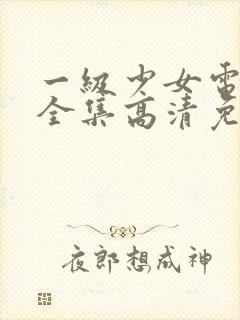 一級少女電
全集高清免
夜郎想成神